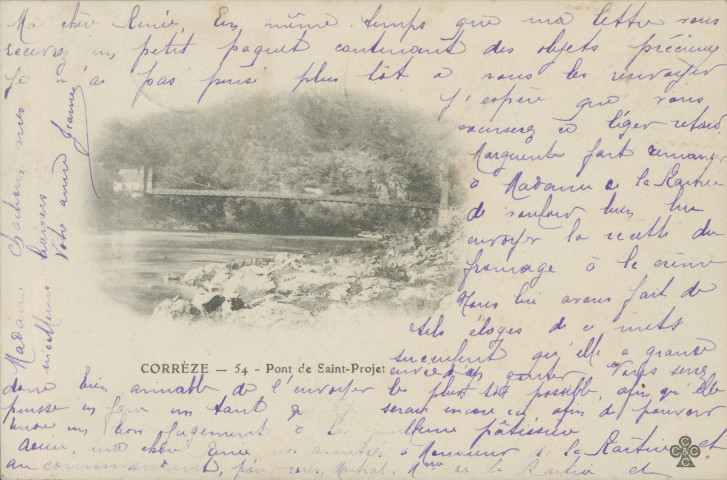 Ma chère Renée, En même temps que ma lettre vous
recevrez un petit paquet contenant des objets précieux
Je n'ai pas pensé plus tôt à vous les renvoyer
J'espère que vous
excuserez ce léger retard
Marguerite fait demander
à Madame de la
de vouloir bien lui
envoyer la recette du
fromage à la crème
Nous lui avons fait de
tels éloges de ce mets
succulent qu'elle a grande
envie d'en goûter. Vous serez
donc bien aimable de l'envoyer le plus tôt possible, afin qu'elle
puisse en faire un tant que je serai encore ici afin de pouvoir
un bon jugement à la pâtissière
ma chère amitiés à Monsieur de la et
au commandant, pour vous, Mme de la et
Madame mes
meilleurs baisers
Votre amie Jeanne
CORRÈZE — 54 - Pont de Saint-Projet
C C C C